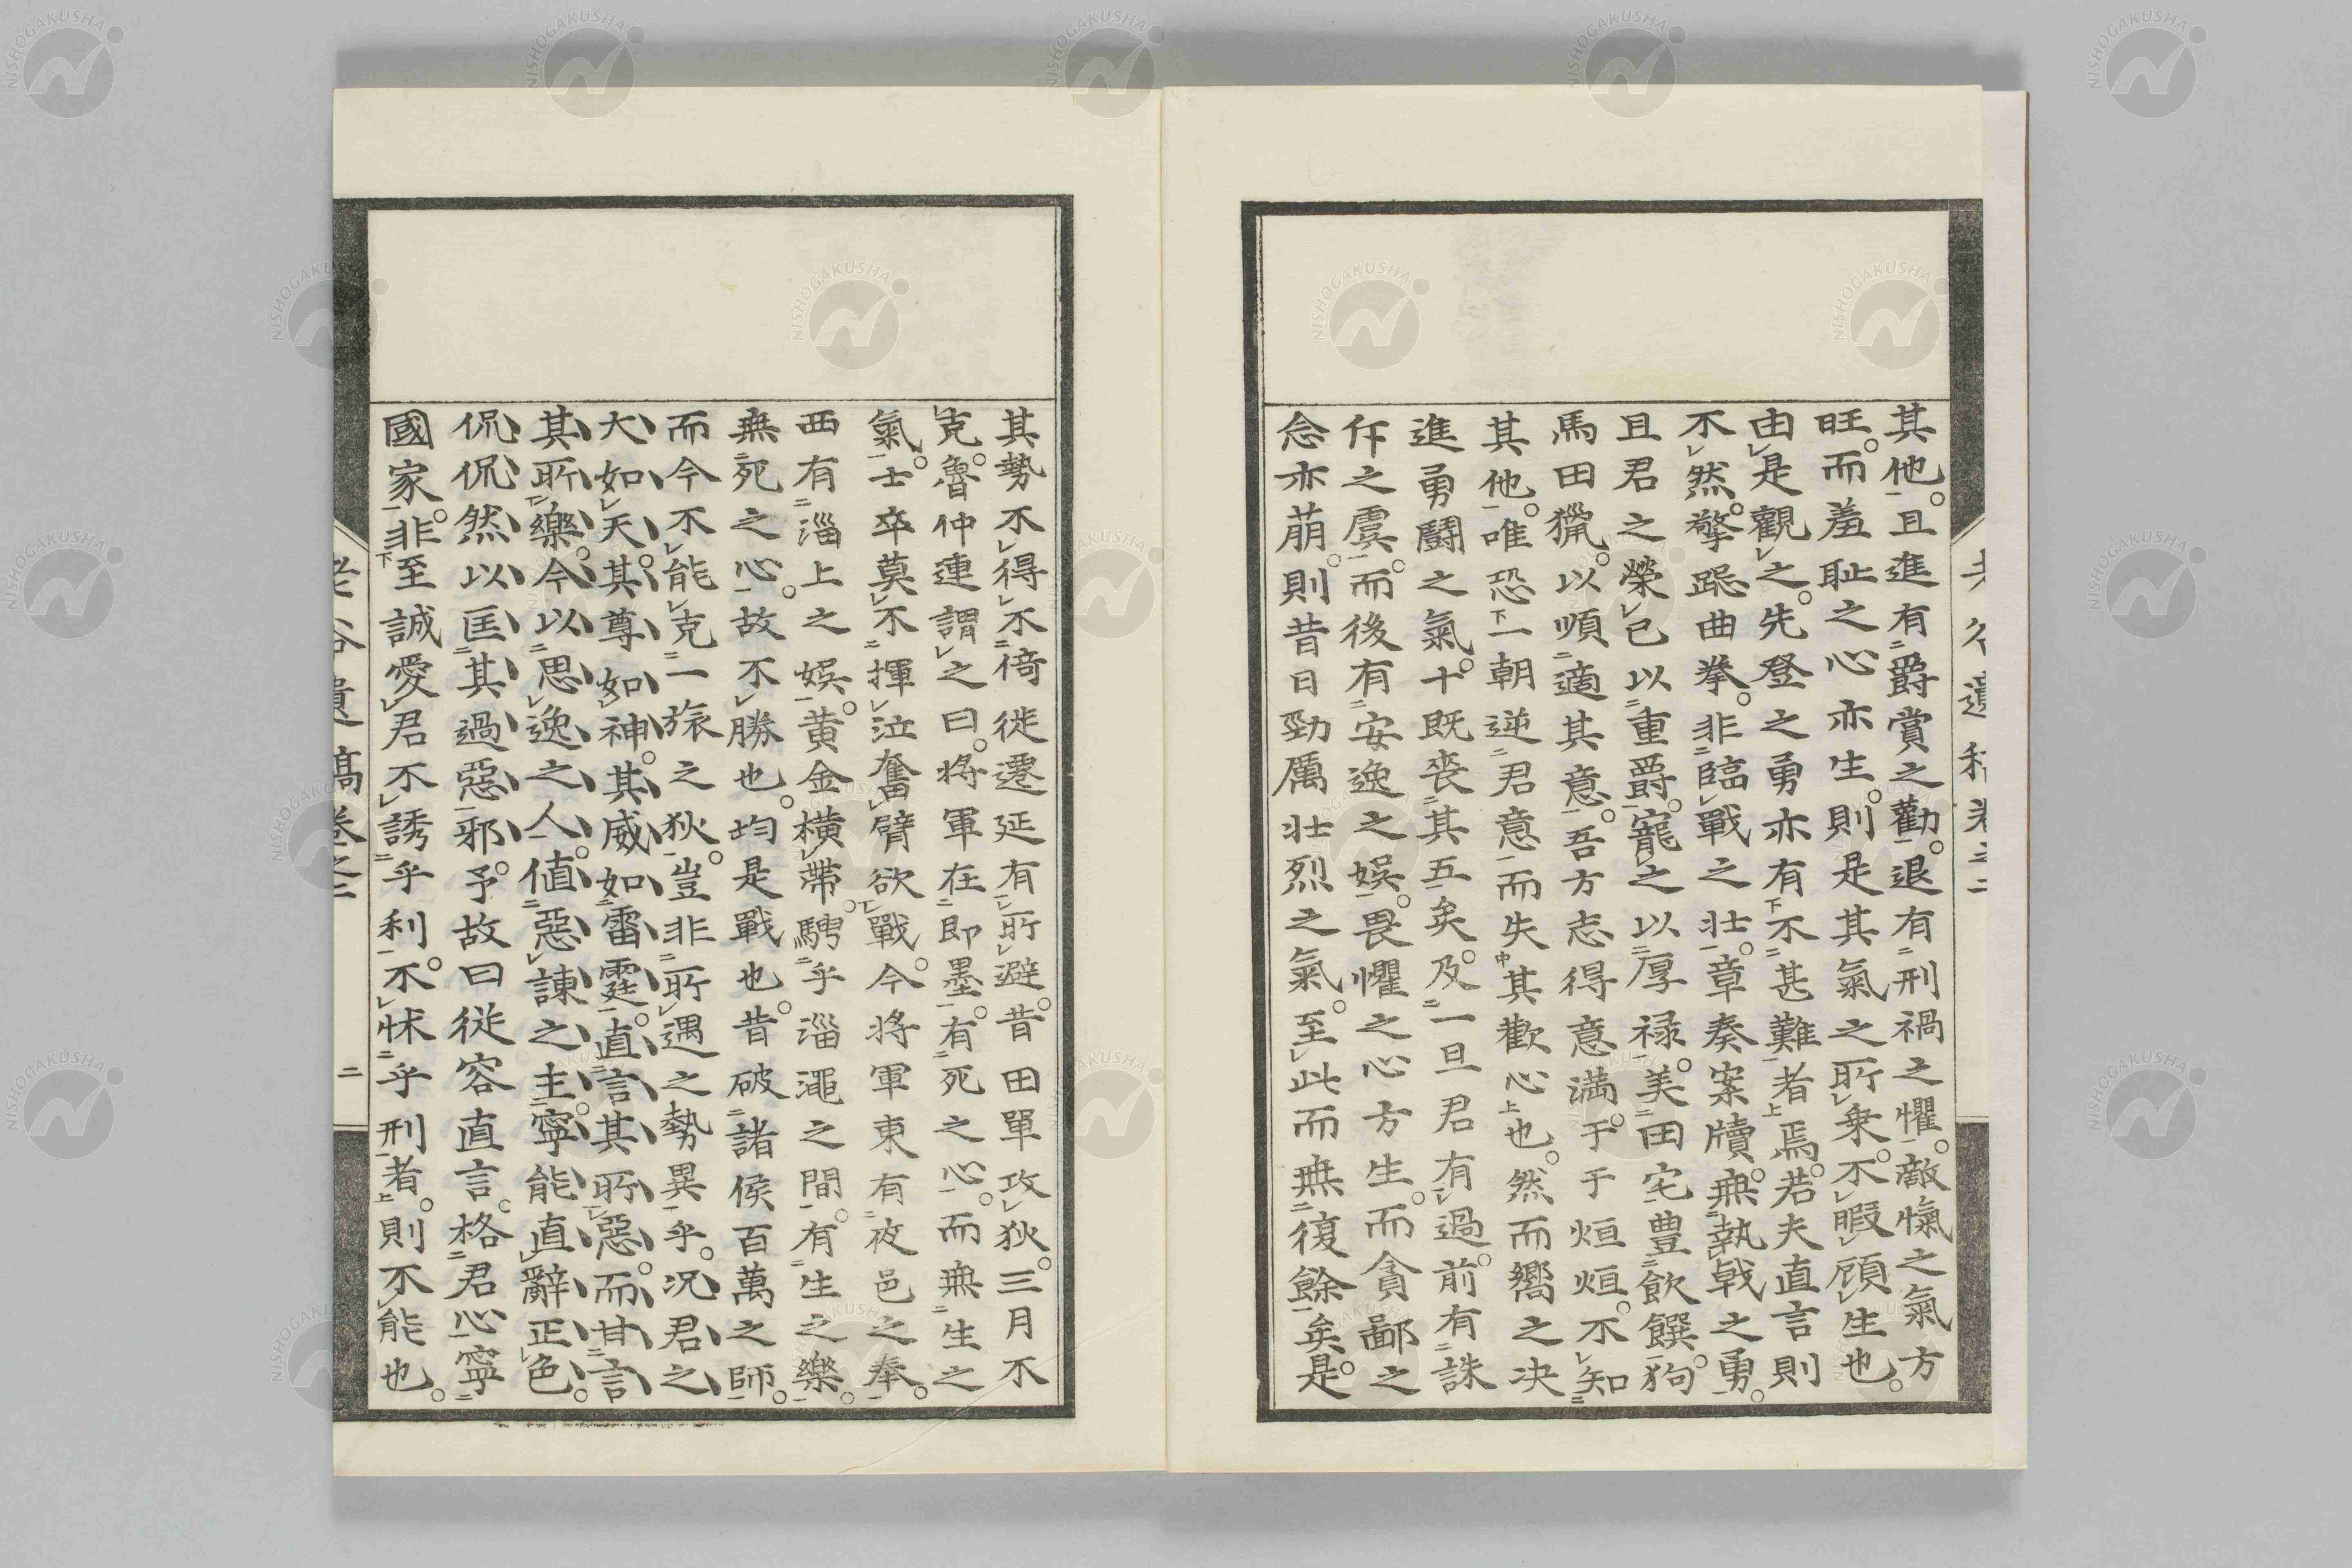 其他。且進有爵賞之勸。退有刑禍之懼。敵愾之氣方
旺。而羞恥之心亦生。則是其氣之所乗。不暇顧生也。
由是觀之。先登之勇亦有不甚難者焉。若夫直言則
不然。擎跽曲拳。非臨戰之壮。章奏案牘。無執戟之勇。
且君之榮已以重爵。寵之以厚禄。美田宅豊飲饌。狗
馬田獵。以順適其意。吾方志得意満。于于烜烜。不知
其他。唯恐一朝逆君意而失其歡心也。然而嚮之决
進勇闘之氣。十既喪其五矣。及一旦君有過。前有誅
斥之虞。而後有安逸之娯。畏懼之心方生。而貪鄙之
念亦萠。則昔日勁厲壮烈之氣。至此而無復餘矣。是
其勢不得不倚徙遷延有所避。昔田單攻狄。三月不
克。魯仲連謂之曰。将軍在即墨。有死之心。而無生之
氣。士卒莫不揮泣奮臂欲戰。今将軍東有夜邑之奉。
西有淄上之娯。黄金横帶。騁乎淄澠之間。有生之樂。
無死之心。故不勝也。均是戰也。昔破諸侯百萬之師。
而今不能克一旅之狄。豈非所遇之勢異乎。况君之
大如天。其尊如神。其威如雷霆。直言其所惡。而甘言
其所樂。今以思逸之人。値惡諫之主。寧能直辭正色。
侃侃然以匡其過惡邪。予故曰従容直言。格君心寧
國家。非至誠愛君不誘乎利。不怵乎刑者。則不能也。
老谷遺稿卷之二
二